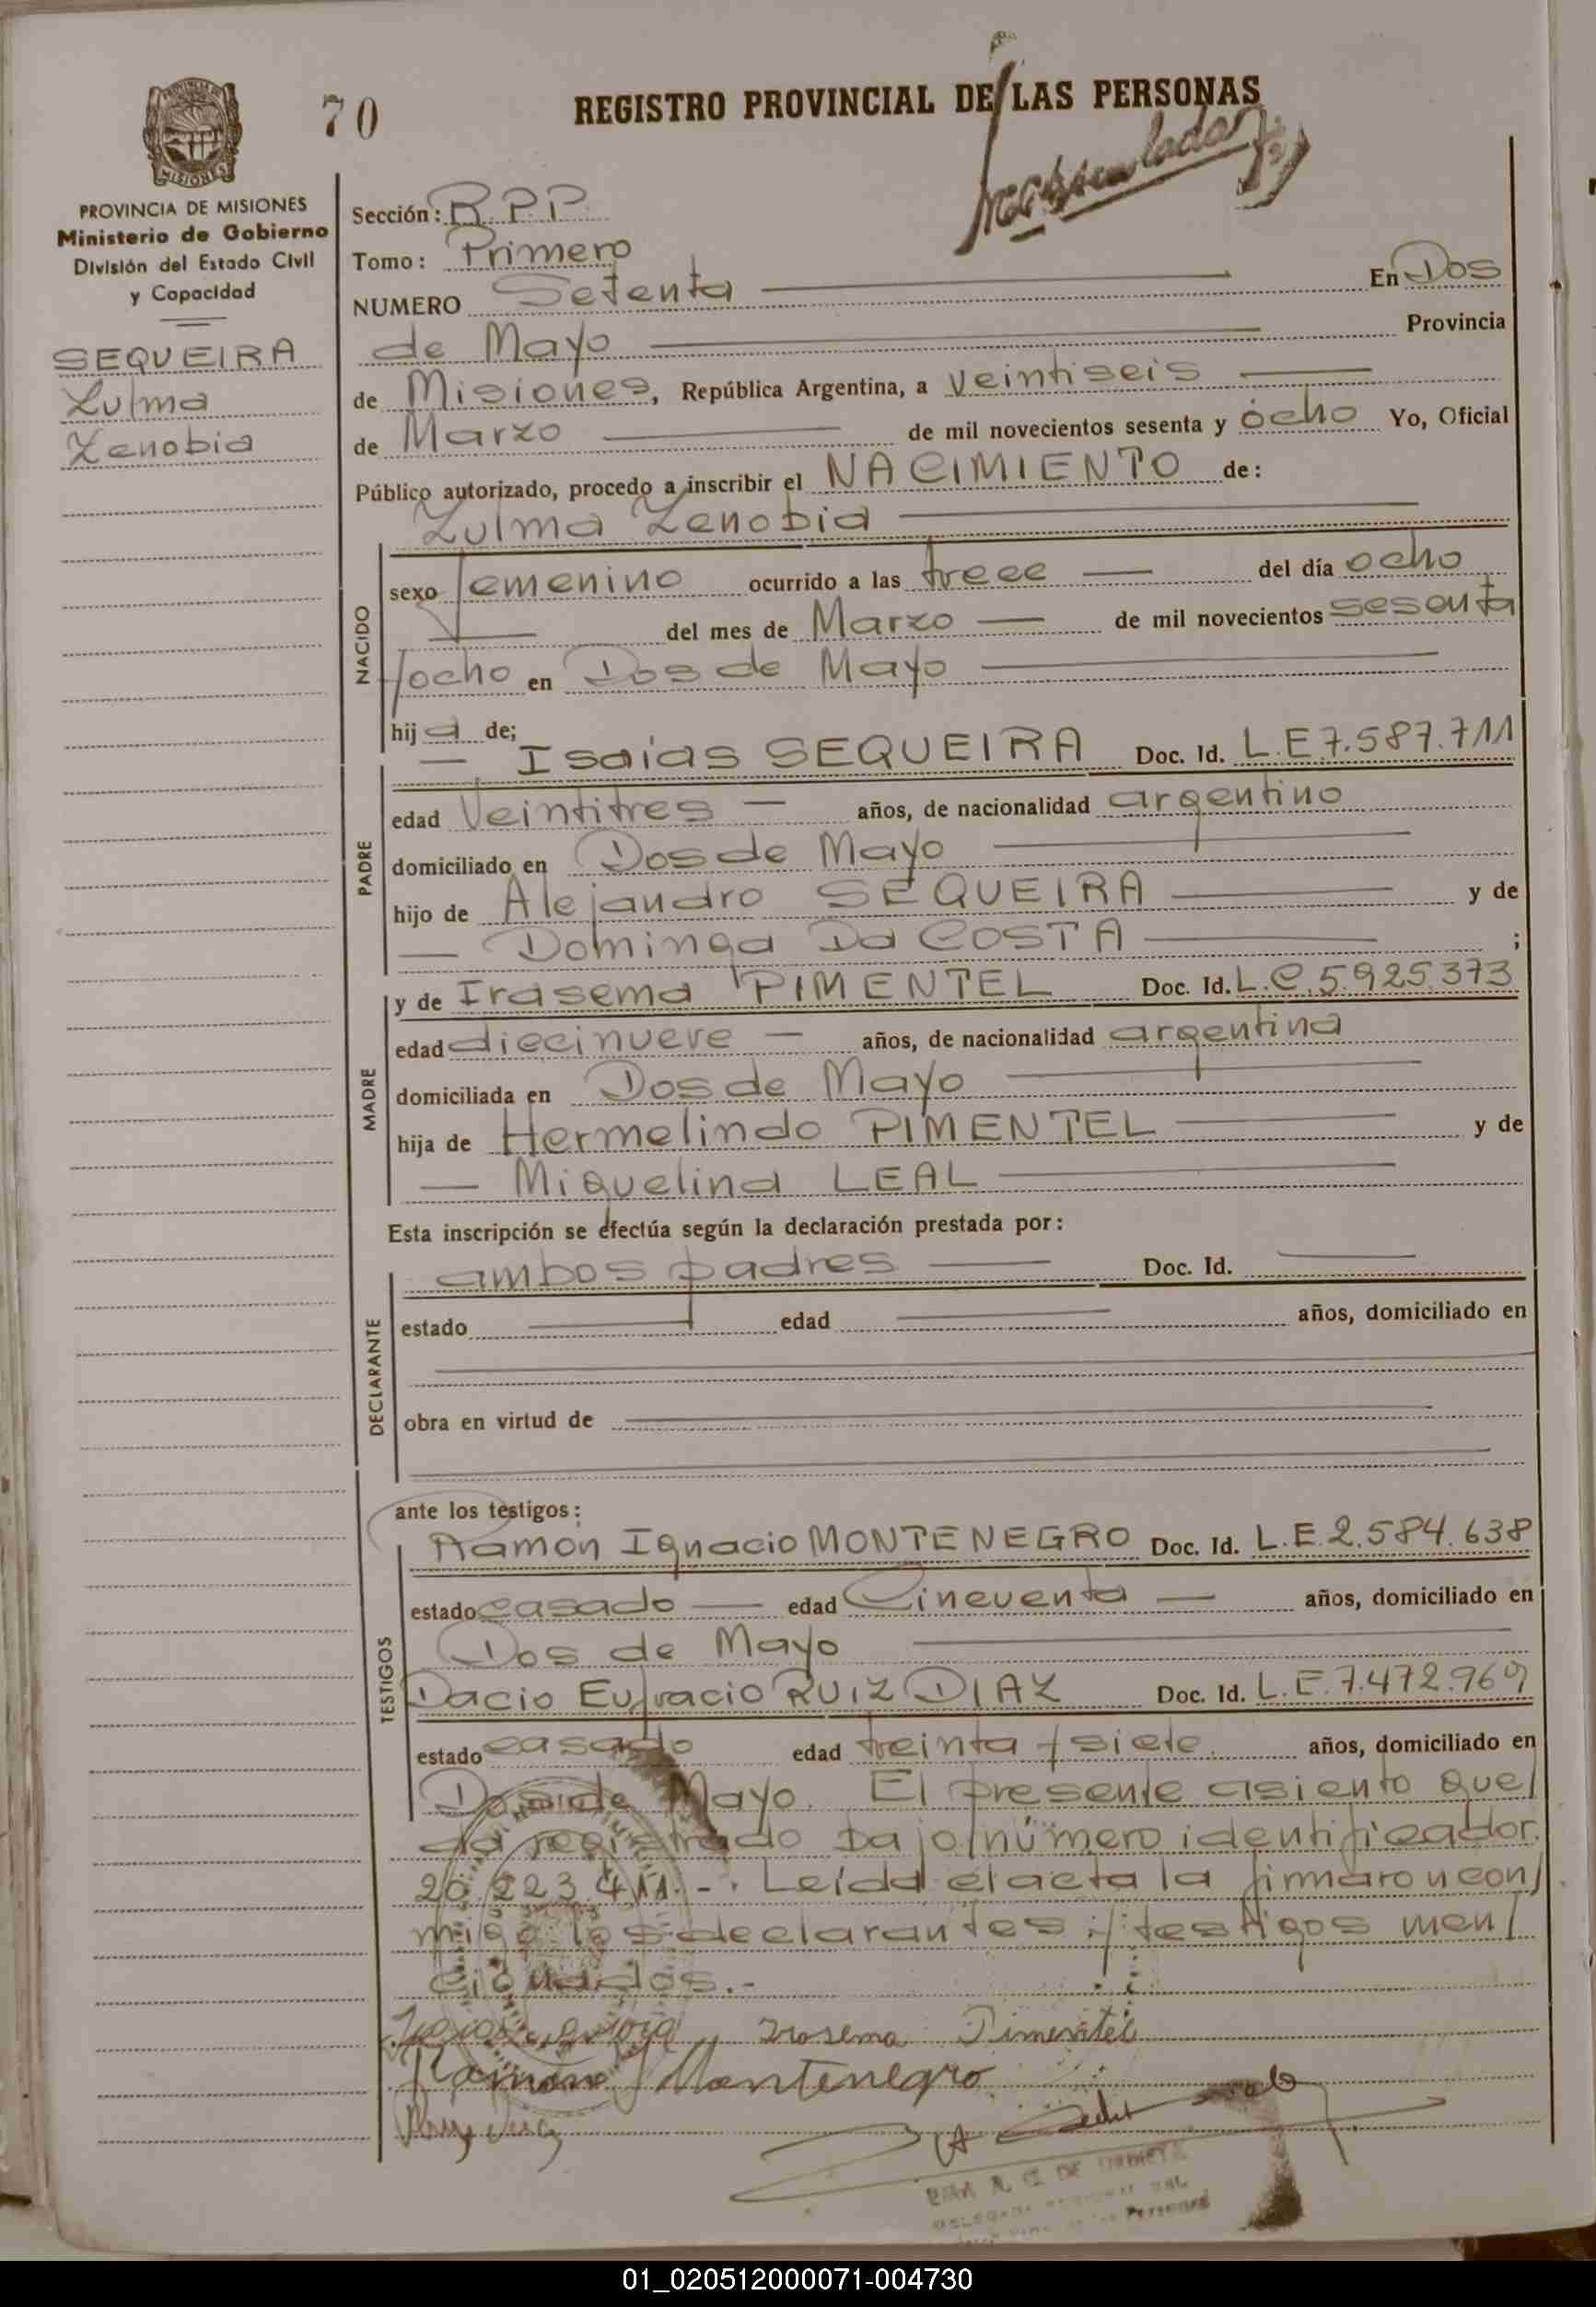 70
REGISTRO PROVINCIAL DE LAS PERSONAS
MISIONES
PROVINCIA DE MISIONES
Ministerio de Gobierno
División del Estado Civil
y Capacidad
SEQUEIRA
Zulma
Zenobia
Sección: R.P.P.
Tomo: Primero
NUMERO Setenta En Dos
de Mayo Provincia
de Misiones, República Argentina, a veintiseis
de Marzo de mil novecientos sesenta y ocho Yo, Oficial
Público autorizado, procedo a inscribir el NACIMIENTO de:
Zulma Zenobia
NACIDO
sexo femenino ocurrido a las trece del día ocho
del mes de Marzo de mil novecientos sesenta
y ocho en Dos de Mayo
hija de;
Isaías SEQUEIRA Doc. Id. L.E 7.587.711
PADRE
edad Veintitres años, de nacionalidad argentino
domiciliado en Dos de Mayo
hijo de Alejandro SEQUEIRA y de
Dominga Da COSTA ;
MADRE
y de Irasema PIMENTEL Doc. Id. L.C.5.925.373
edad diecinueve años, de nacionalidad argentina
domiciliada en Dos de Mayo
hija de Hermelindo PIMENTEL y de
Miquelina LEAL
Esta inscripción se efectúa según la declaración prestada por:
DECLARANTE
ambos padres Doc. Id.
estado edad años, domiciliado en
obra en virtud de
ante los testigos:
TESTIGOS
Ramón Ignacio MONTENEGRO Doc. Id. L.E.2.584.638
estado casado edad Cincuenta años, domiciliado en
Dos de Mayo
Dacio Eufracio RUIZ DIAZ Doc. Id. L.E.7.472.969
estado casado edad treinta y siete años, domiciliado en
Dos de Mayo. El presente asiento que/
da registrado bajo número identificador
20.223.411.-. Leída el acta la firmaron con/
migo los declarantes y testigos men/
cionados.-
Irasema Pimentel
Ramón Montenegro
01_020512000071-004730